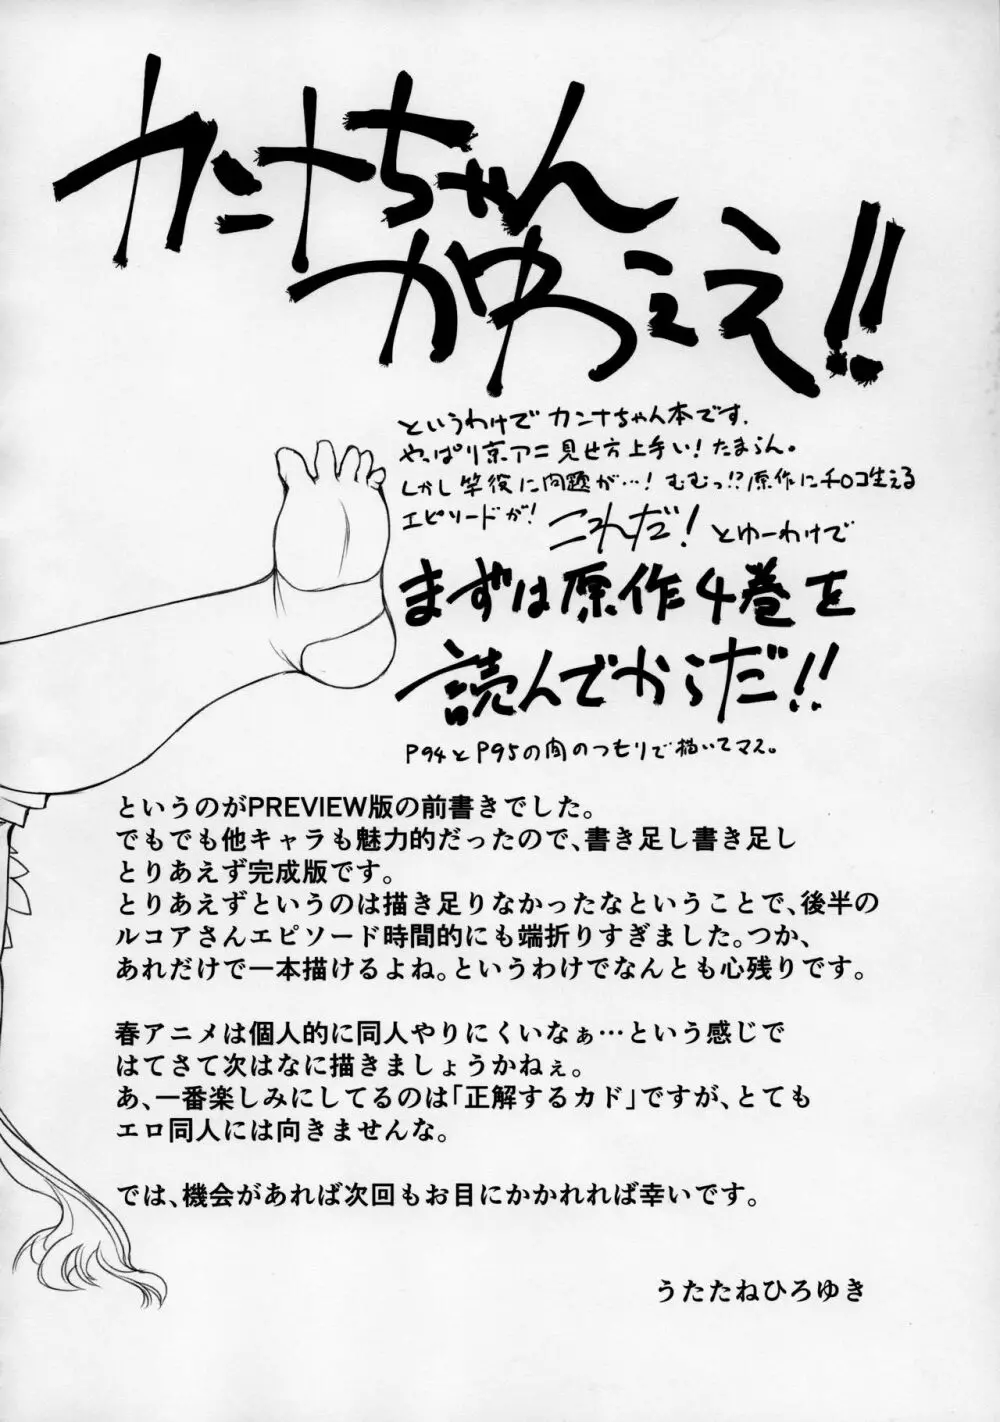 カンナちゃん
かわええ!!
というわけで カンナちゃん本です.
やっぱり京アニ 見せ方上手い!たまらん。
しかし竿役に問題が…! むむっ!?原作にチ〇コ生える
エピソードが! これだ! とゆーわけで
まずは原作4巻を
読んでからだ!!
P94とP95の間のつもりで描いてマス。
というのがPREVIEW版の前書きでした。
でもでも他キャラも魅力的だったので、書き足し書き足し
とりあえず完成版です。
とりあえずというのは描き足りなかったなということで、後半の
ルコアさんエピソード時間的にも端折りすぎました。つか、
あれだけで一本描けるよね。というわけでなんとも心残りです。
春アニメは個人的に同人やりにくいなぁ…という感じで
はてさて次はなに描きましょうかねぇ。
あ、一番楽しみにしてるのは「正解するカド」ですが、とても
エロ同人には向きませんな。
では、機会があれば次回もお目にかかれれば幸いです。
うたたねひろゆき